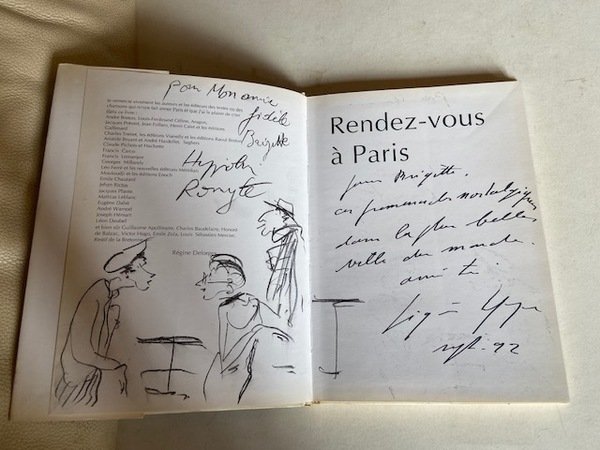 pour Mon amie
fidèle
Brigitte
Je remercie vivement les auteurs et les éditeurs des textes ou des
chansons qui m'ont fait aimer Paris et que j'ai le plaisir de citer
dans ce livre :
André Breton, Louis-Ferdinand Céline, Aragon,
Jacques Prévert, Jean Follain, Henri Calet et les éditions
Gallimard
Charles Trenet, les éditions Vianelly et les éditions Raoul Breton
Aristide Bruant et André Hardellet, Seghers
Claude Pichois et Hachette
Francis Carco
Francis Lemarque
Georges
Léo Ferré et les nouvelles éditions Méridian
Mouloudji et les éditions Enoch
Emile Chautard
Jehan Rictus
Jacques Plante
Mathias Leblanc
Eugène Dabit
André Warnod
Joseph Hémart
Léon Deubel
et bien sûr Guillaume Apollinaire, Charles Baudelaire, Honoré
de Balzac, Victor Hugo, Emile Zola, Louis Sébastien Mercier,
Restif de la Bretonne
Régine
Rendez-vous
à Paris
pour Brigitte,
ces promenades nostalgiques
dans la plus belle
ville du monde.
92